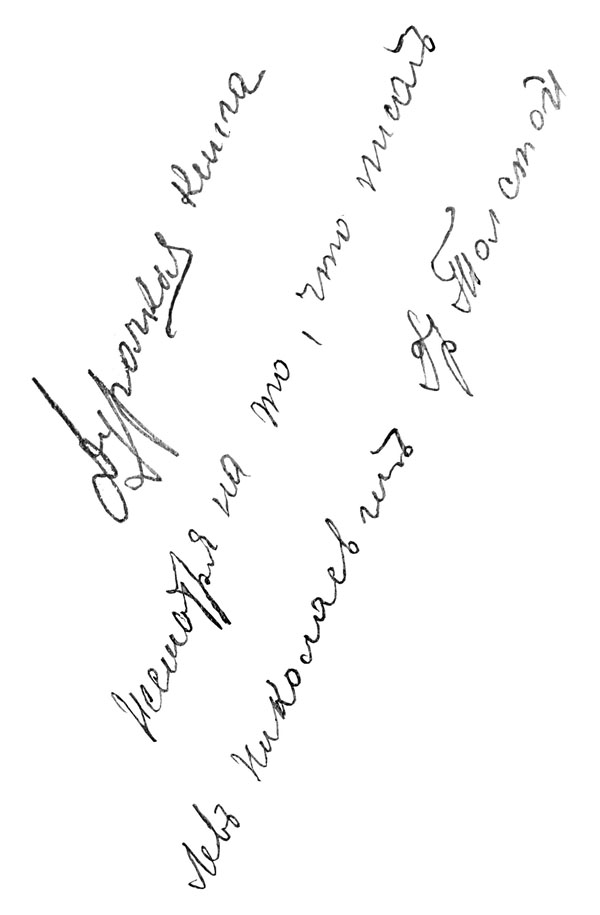 Дурацкая книга
Несмотря на то, что писалъ
Левъ Николаевичъ гр Толстой